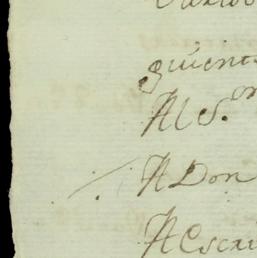 guient
Al S.or
A Don
A Escri